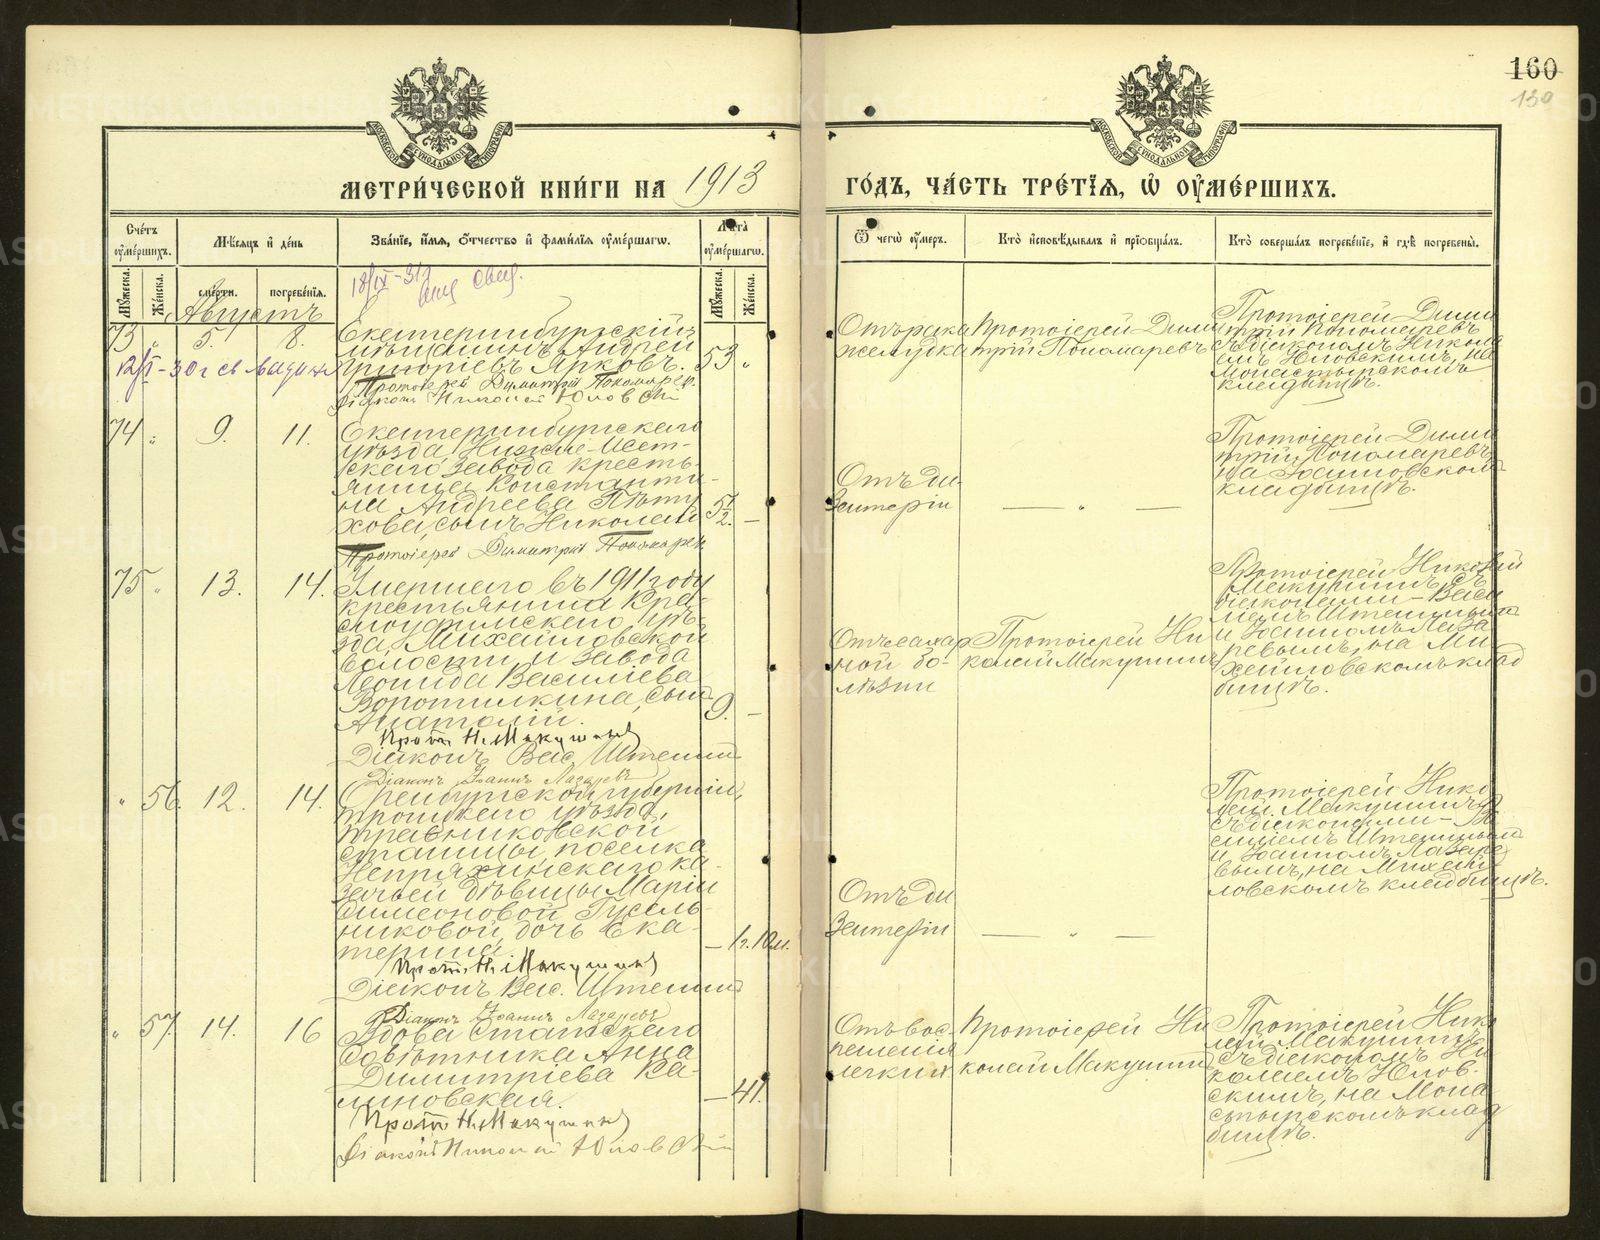 160
130
МЕТРИ́ЧЕСКОЙ КНИ́ГИ НА 1913
ГО́ДЪ, ЧА́СТЬ ТРЕ́ТЇѦ, Ѡ҆ ОУ҆МЕ́РШИХЪ.
Сче́тъ оу҆ме́ршихъ.
Мѣ́сѧцъ и҆ де́нь
Зва́нїе, и҆́мѧ, ѻ҆́тчество и҆ фами́лїѧ оу҆ме́ршагѡ.
Лѣ́та̀ оу҆ме́ршагѡ.
Ѿ чегѡ̀ оу҆́меръ.
Кто̀ и҆сповѣ́дывалъ и҆ прїѡбща́лъ.
Кто̀ соверша́лъ погребе́нїе, и҆ гдѣ̀ погребены̀.
Мꙋ́жеска. Же́нска.
сме́рти. погребе́нїѧ.
Мꙋ́жеска. Же́нска.
Августъ
73 " 5. 8.
Екатеринбургскій
мѣщанинъ Андрей
Григорьевъ Ярковъ.
Протоіерей Димитрій Пономарев
Діаконъ Николай Юловскій
53 "
Отъ рака
желудка
Протоіерей Дими
трій Пономаревъ
Протоіерей Дими
трій Пономаревъ
съ діакономъ Никола
емъ Юловскимъ, на
Монастырскомъ
кладбищѣ.
74 " 9. 11.
Екатеринбургскаго
уѣзда, Нижне-Исет-
скаго завода кресть-
янина Константи-
на Андреева Пѣту
хова, сынъ Николай
Протоіерей Димитрій Пономарев
5 1/2. —
Отъ ди
зентеріи
— " —
Протоіерей Дими
трій Пономаревъ,
на Іоанновскомъ
кладбищѣ.
75 " 13. 14.
Умершаго въ 1911 году
крестьянина Кра-
сноуфимскаго уѣ-
зда, Михайловской
волости и завода
Леонида Васильева
Воротилкина, сынъ
Анатолій.
Прот. Н. Макушинъ
Діаконъ Вас. Иштелинъ
Діаконъ Іоаннъ Лазаревъ
9. —
Отъ сахар
ной бо-
лѣзни
Протоіерей Ни
колай Макушинъ
Протоіерей Николай
Макушинъ съ
діаконами – Васи
ліемъ
и Іоанномъ Лаза
ревымъ, на Ми
хайловскомъ клад
бищѣ.
" 56. 12. 14.
Оренбургской губерніи,
троицкаго уѣзда,
травниковской
станицы, поселка
Непряхинскаго ка-
зачьей дѣвицы Маріи
Симеоновой Гусель-
никовой, дочь Ека-
терина
Прот. Н. Макушинъ
Діаконъ Вас. Иштелинъ
Діаконъ Іоаннъ Лазаревъ
— 1 г. 10 м.
Отъ ди
зентеріи
— " —
Протоіерей Нико
лай Макушинъ
съ діаконами – Ва
силіемъ
и Іоанномъ Лазаре
вымъ, на Михай
ловскомъ кладбищѣ.
" 57. 14. 16
Вдова статскаго
совѣтника Анна
Димитріева Ка-
линовская.
Прот. Н. Макушинъ
Діаконъ Николай Юловскій
— 41.
Отъ вос
паленія
легкихъ
Протоіерей Ни
колай Макушинъ
Протоіерей Нико
лай Макушинъ
съ діакономъ Ни
колаемъ Юлов-
скимъ, на Мона
стырскомъ клад
бищѣ.